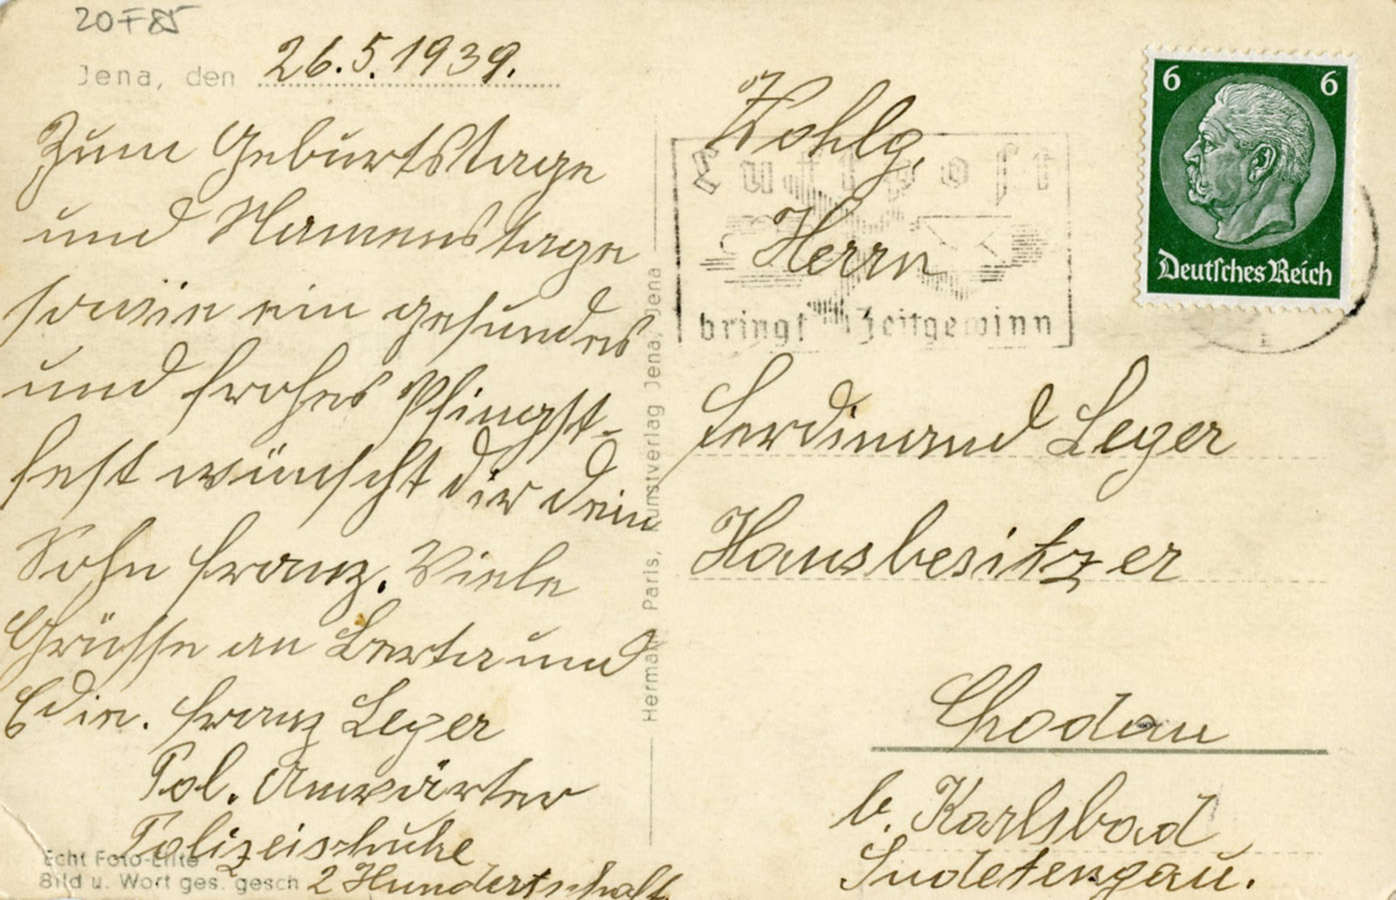 20F85
Jena, den 26.5.1939.
Zum Geburtstage
und Namenstage
sowie ein gesundes
und frohes Pfingst-
fest wünscht dir dein
Sohn Franz. Viele
Grüsse an Berta und
Edie. Franz Leger
Pol. Anwärter
Polizeischule
2 Hundertschaft.
Echt Foto-Elite
Bild u. Wort ges. gesch
Hermann Paris, Kunstverlag Jena, Jena
Luftpost
bringt Zeitgewinn
6 6
Deutsches Reich
Wohlg.
Herrn
Ferdinand Leger
Hausbesitzer
Chodau
b. Karlsbad
Sudetengau.